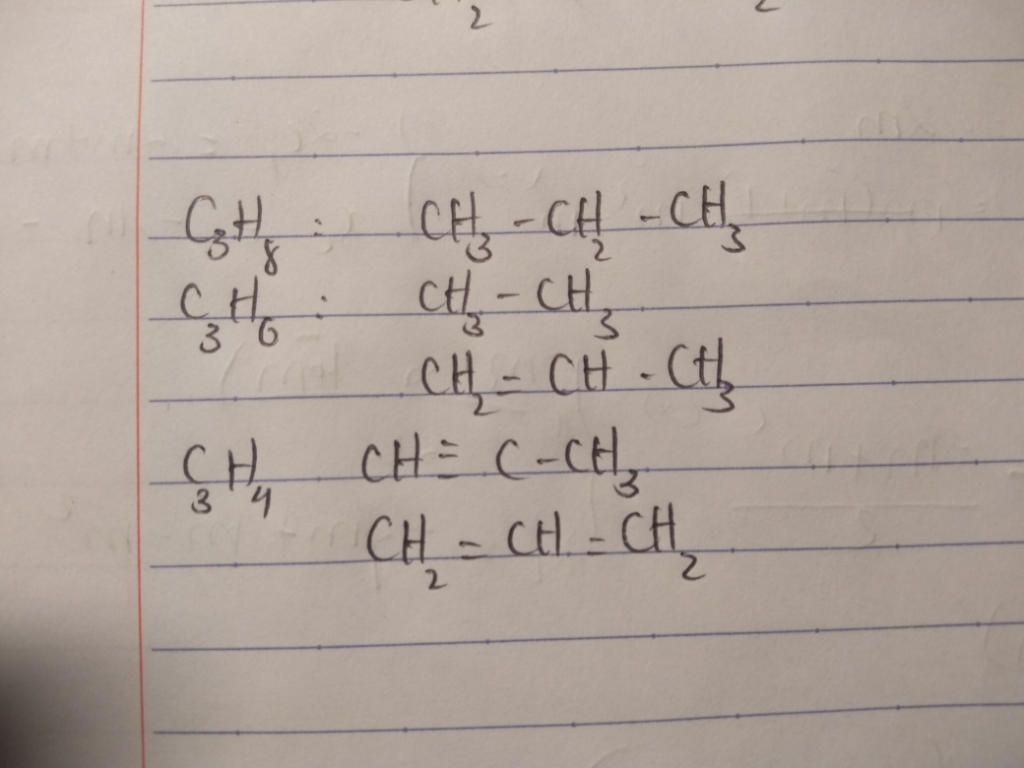 C₃H₈ : CH₃ - CH₂ - CH₃
C₃H₆ : CH₃ - CH₃
CH₂ - CH - CH₃
C₃H₄ CH ≡ C - CH₃
CH₂ = CH = CH₂